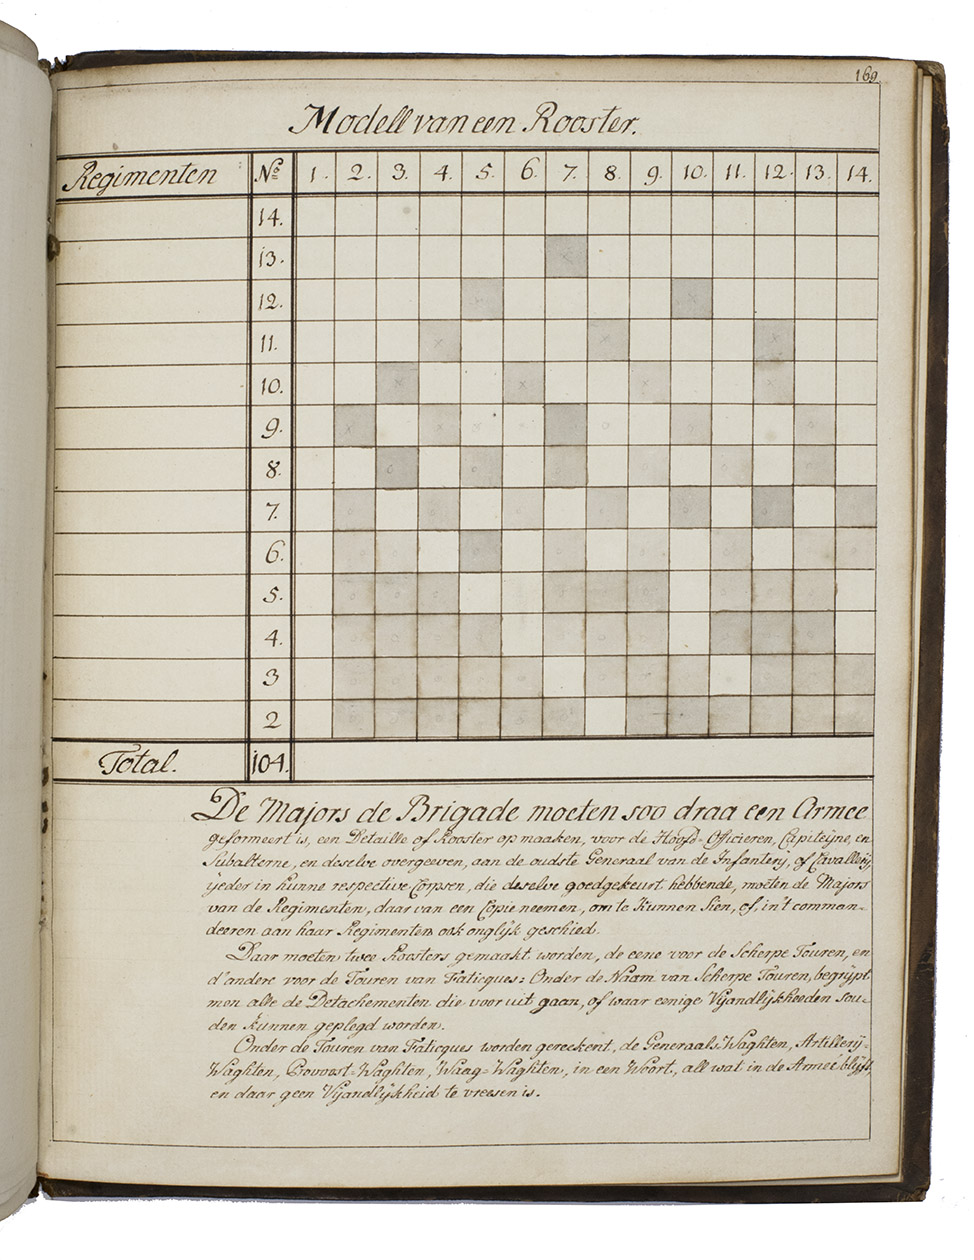 169
Modell van een Rooster.
Regimenten No 1. 2. 3. 4. 5. 6. 7. 8. 9. 10. 11. 12. 13. 14.
14.
13.
12.
11.
10.
9.
8.
7.
6.
5.
4.
3
2
Total. 104.
De Majors de Brigade moeten soo draa een Armee
geformeert is, een Detaille of Rooster op maaken, voor de Hoofd-Officieren, Capiteijne, en
Subalterne, en deselve overgeven, aan de oudste Generaal van de Infanterij, of Cavallerij,
ijeder in hunne respective Corpsen, die deselve goedgekeurt hebbende, moeten de Majors
van de Regimenten, daar van een Copie neemen, om te kunnen sien, of in't comman-
deeren aan haar Regimenten ook onglijk geschied.
Daar moeten twee Roosters gemaakt worden, de eene voor de Scherpe Touren, en
d'andere voor de Touren van Faticques: Onder de Naam van Scherpe Touren, begrijpt
men alle de Detachementen die voor uit gaan, of waar eenige Vijandlijkheeden sou-
den kunnen geplegd worden.
Onder de Touren van Faticques worden gereekent, de Generaals Waghten, Artillerij-
Waghten, Provoost-Waghten, Waag-Waghten, in een Woort, all wat in de Armeé blijft,
en daar geen Vijandlijkheid te vreesen is.